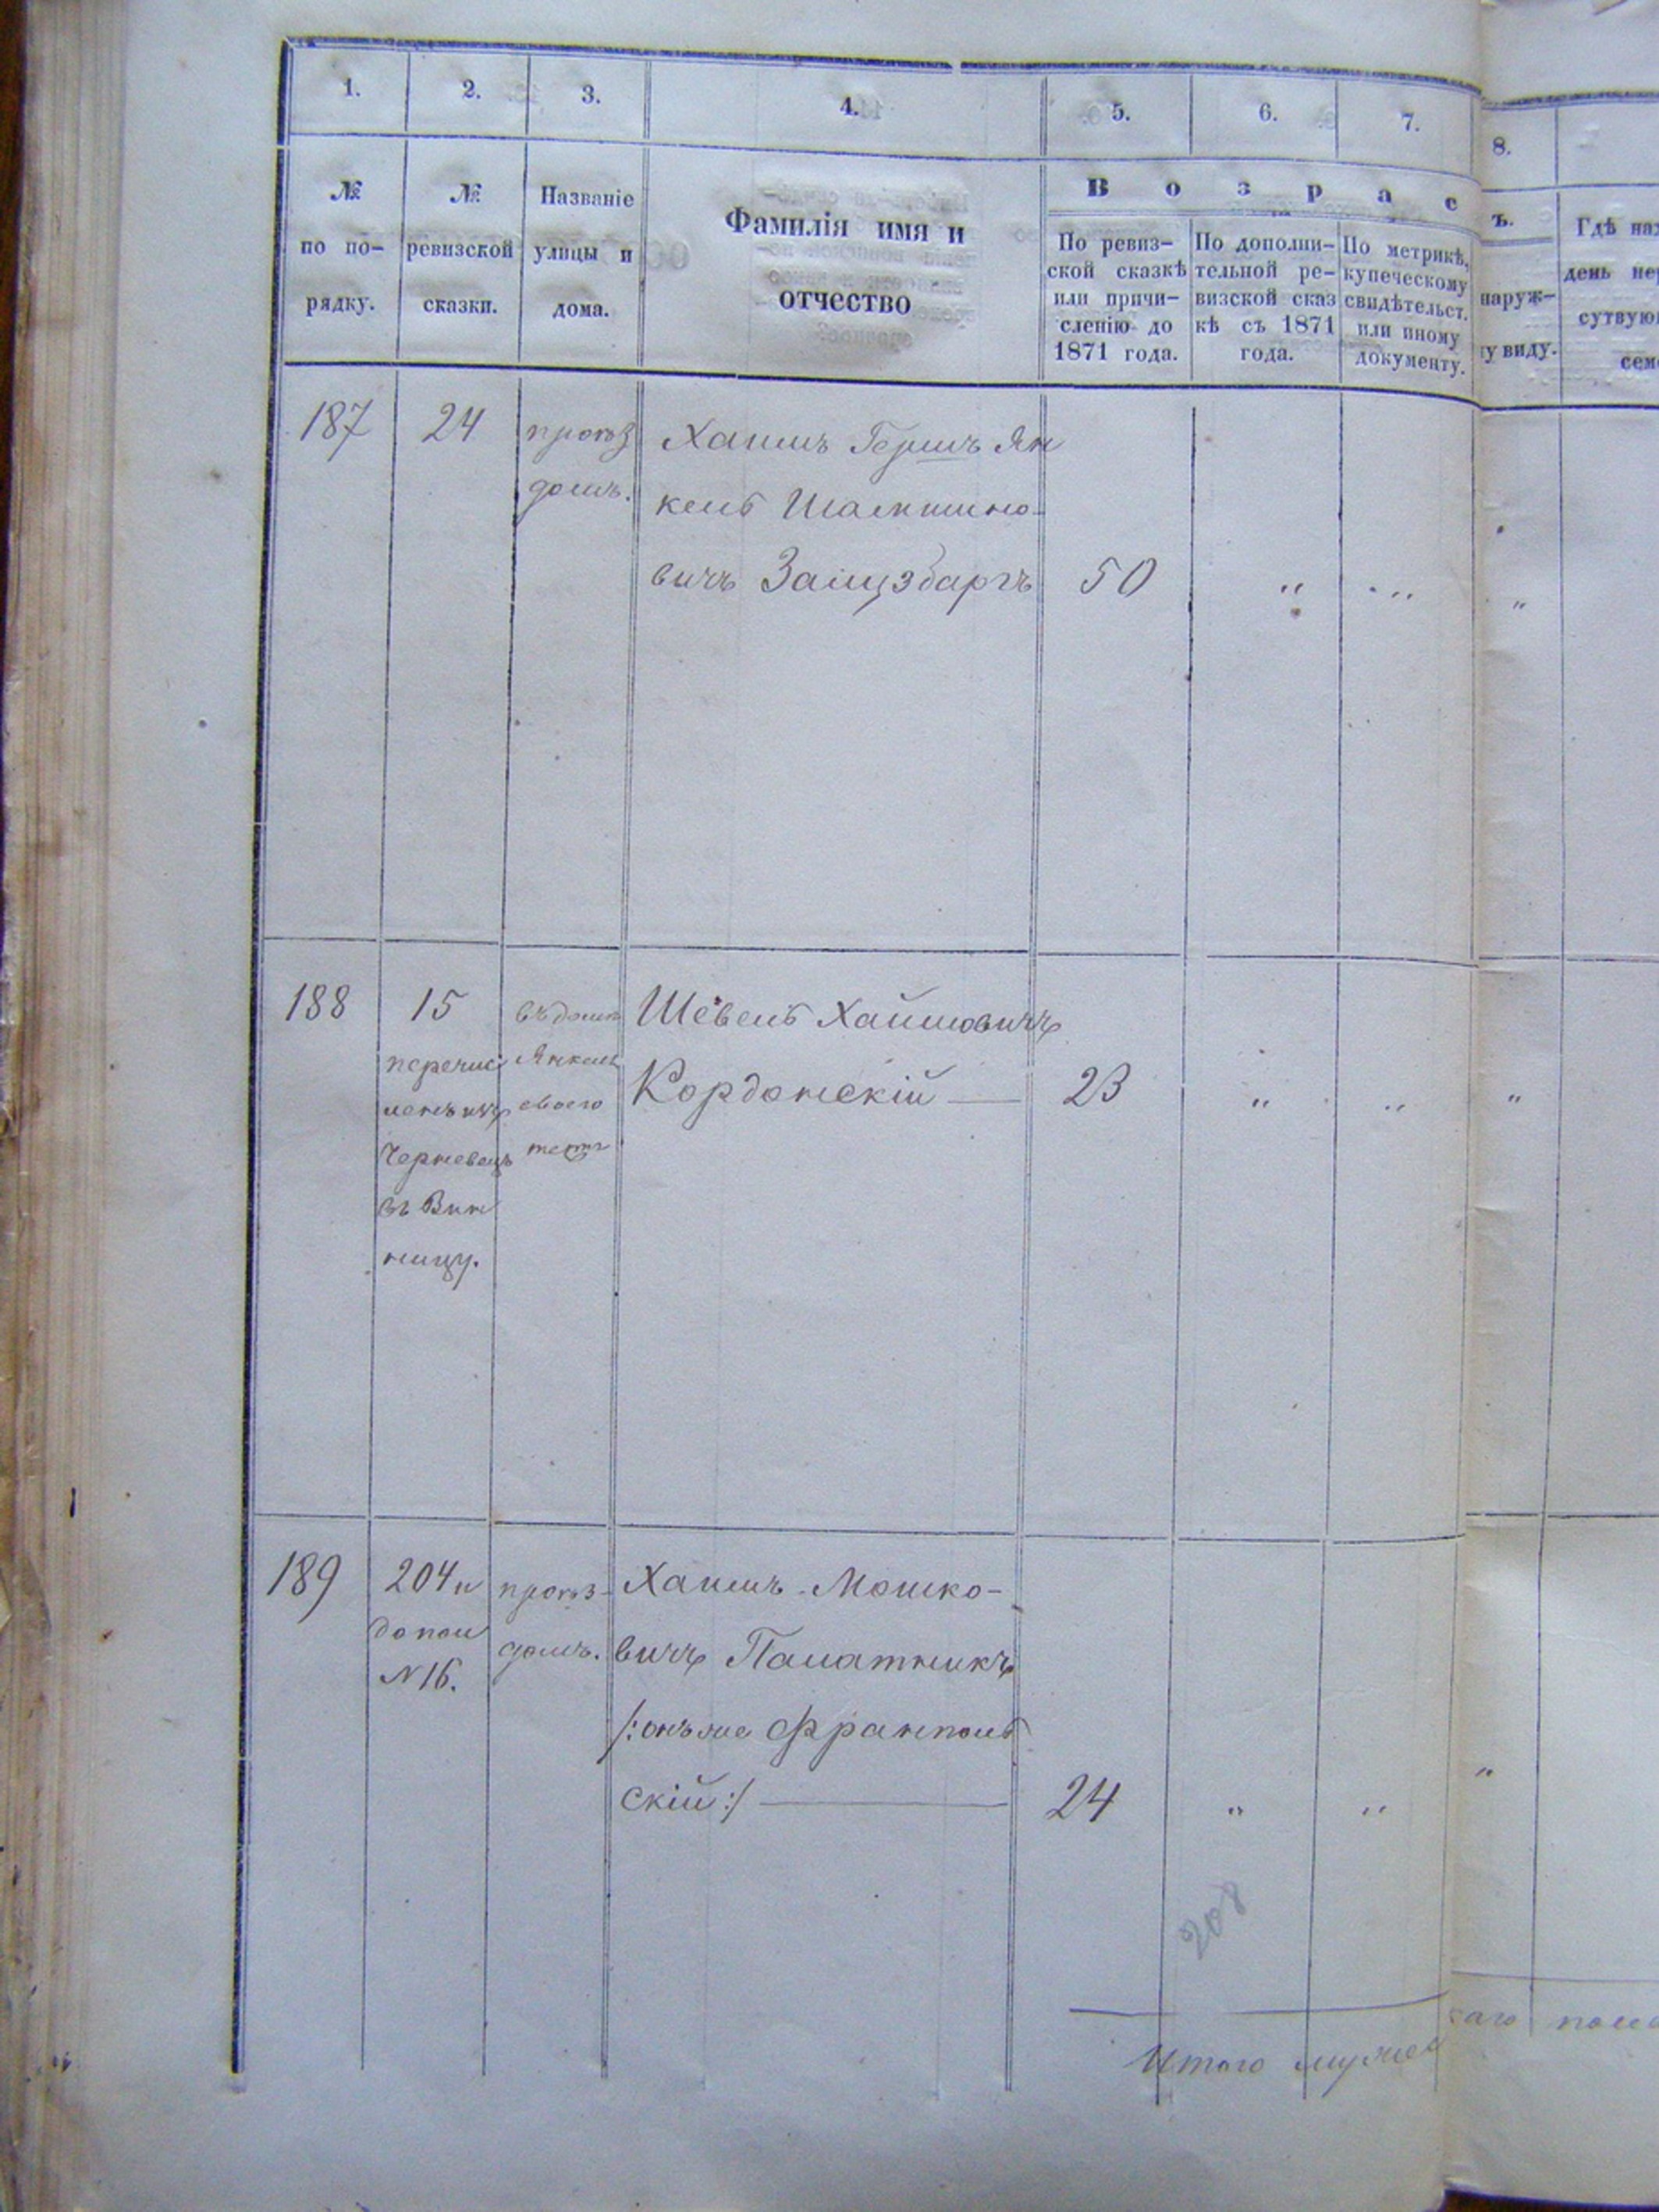 1. 2. 3. 4. 5. 6. 7. 8.
№ по по-
рядку.
№
ревизской
сказки.
Названіе
улицы и
дома.
Фамилія имя и
отчество
В о з р а с
ъ.
По ревиз-
ской сказкѣ
или причи-
сленію до
1871 года.
По дополни-
тельной ре-
визской сказ
кѣ съ 1871
года.
По метрикѣ,
купеческому
свидѣтельст.
или иному
документу.
наруж-
у виду.
Гдѣ нах
день пер
сутвую
сем
187
24
проѣз
домъ.
Хаимъ Гершъ Ян
кель Шампшио-
вичъ Залцзбаргъ
50 " " "
188
15
перечис
ленъ изъ
Черневецъ
въ Вин
ницу.
въ домѣ
Янкель
своего
тестя
Шевель Хаймовичъ
Кордонскій —
23 " " "
189
204 и
допол
N 16.
проѣз-
домъ.
Хаимъ Мошко-
вичъ Палатникъ
/: онъ же Франполь
скій :/ —
24 " " "
208
Итого мужес
каго пола